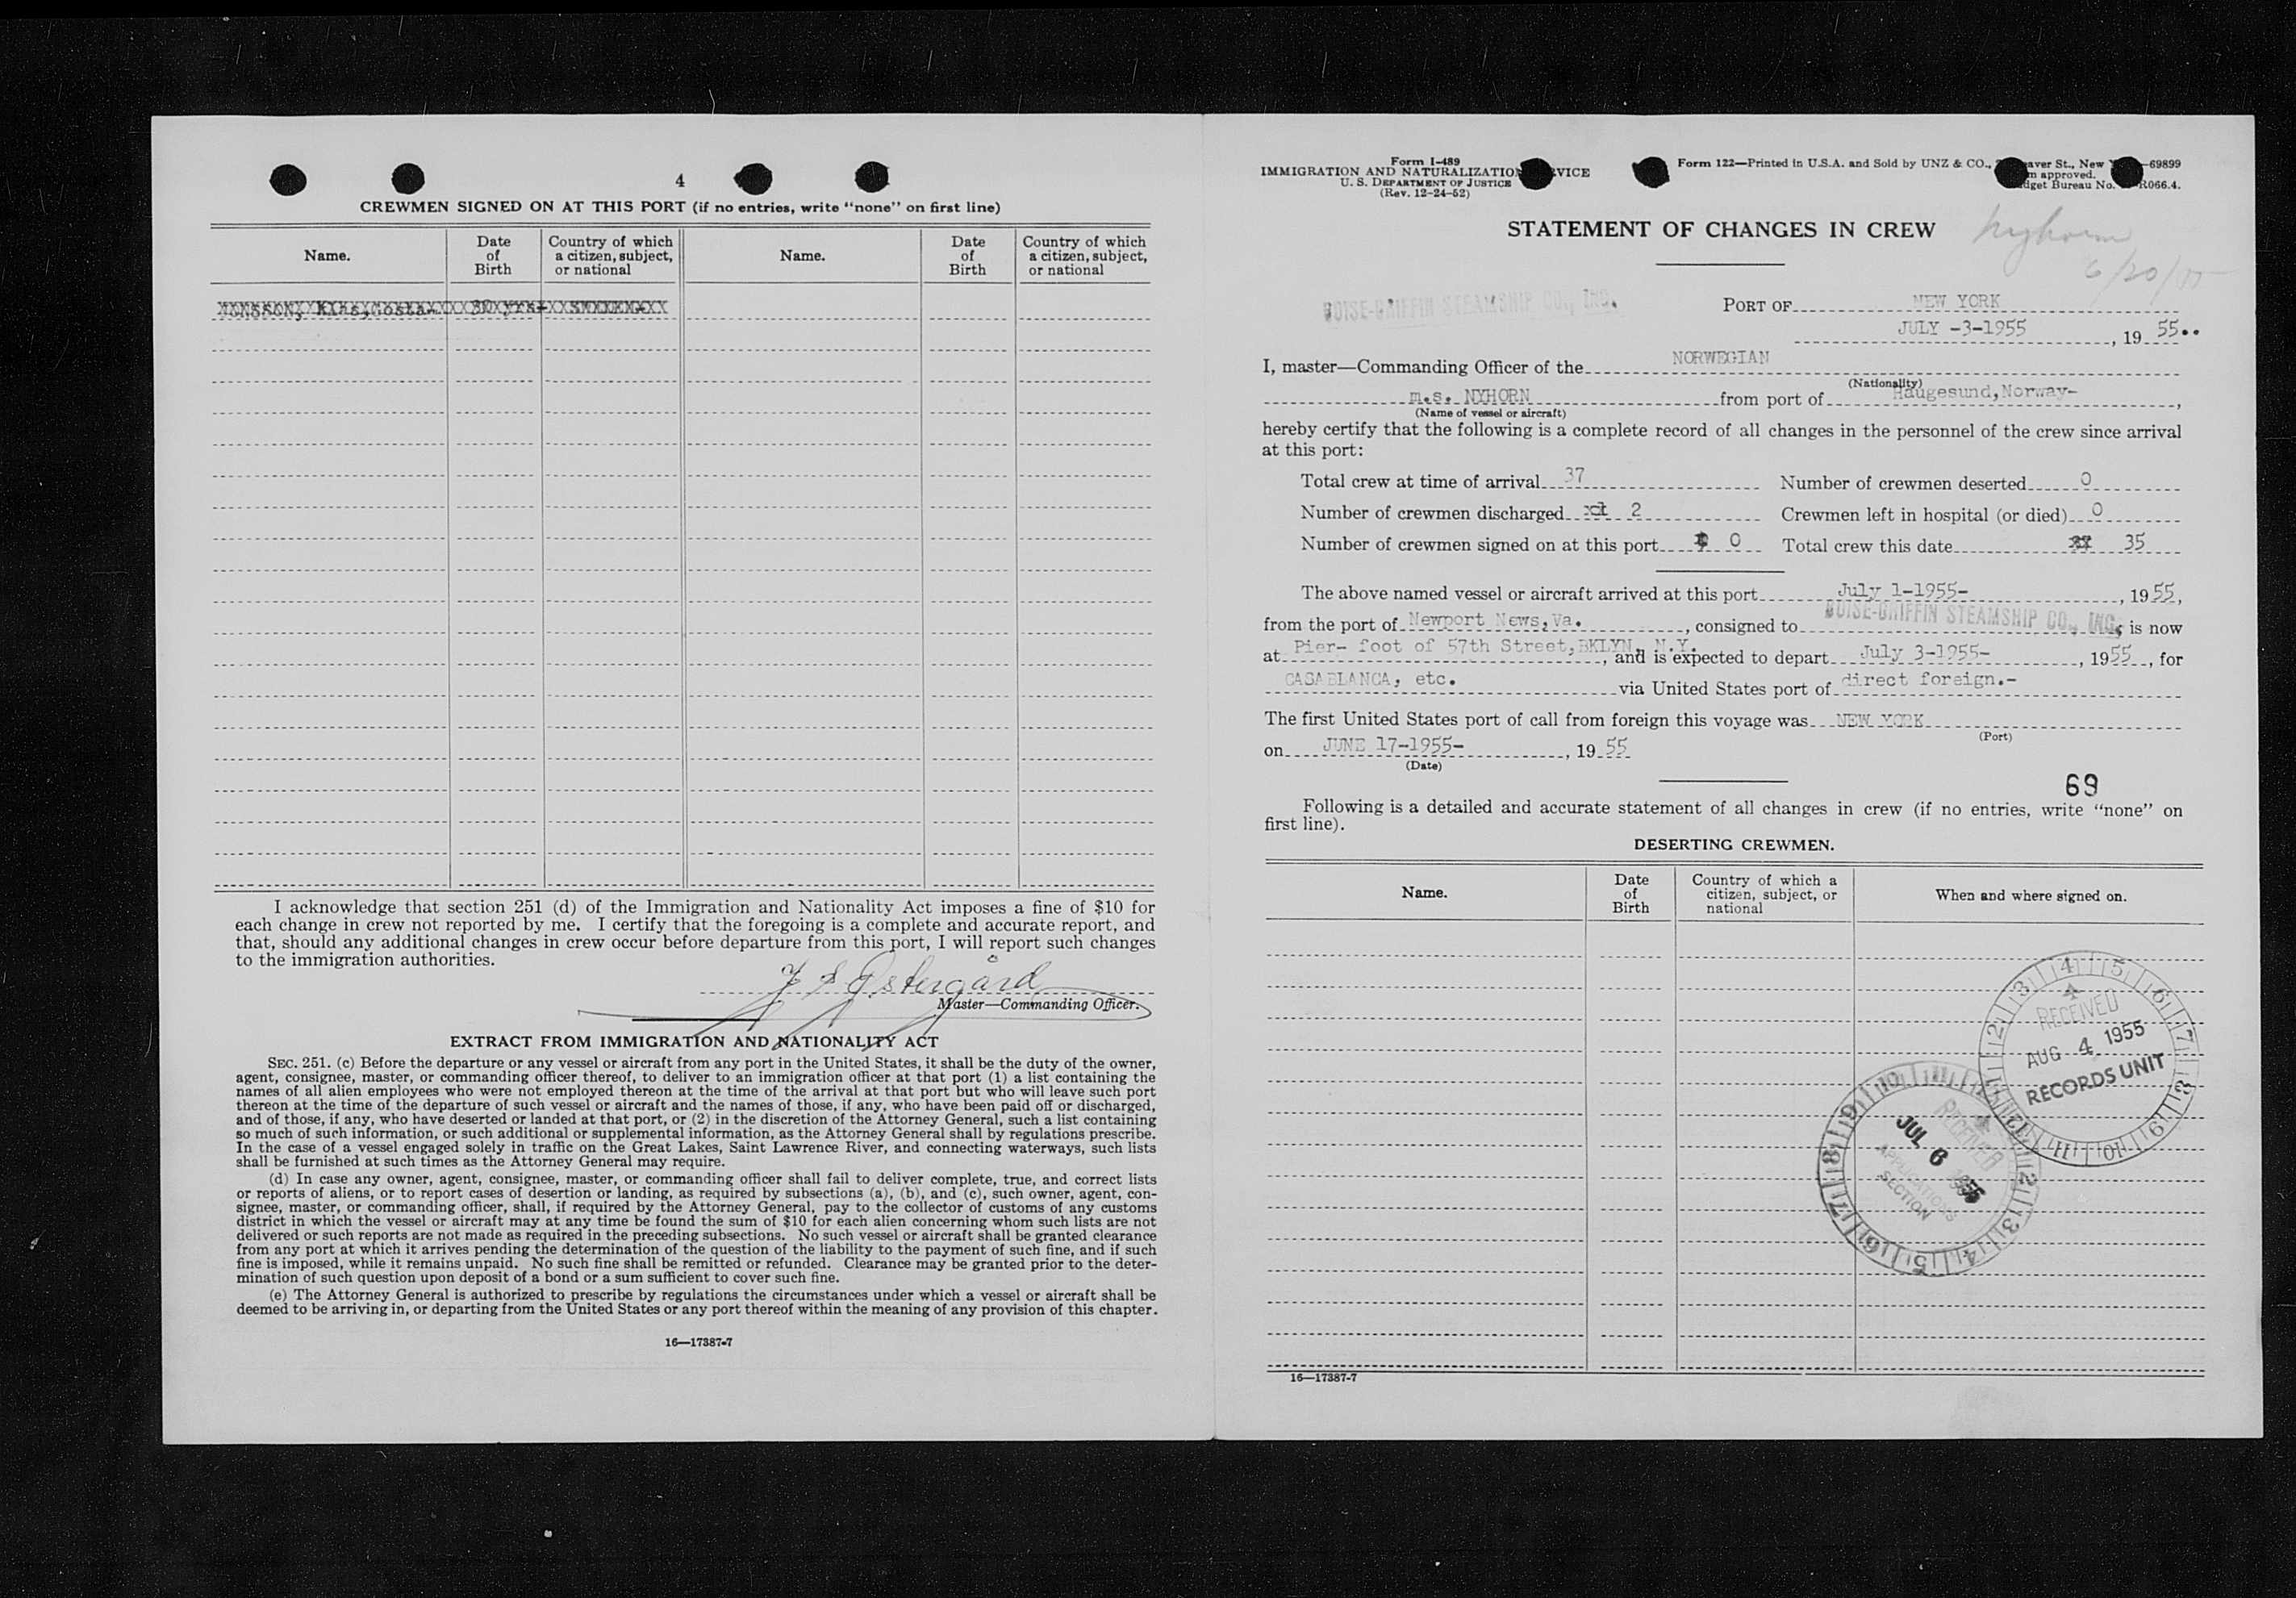 4
CREWMEN SIGNED ON AT THIS PORT (if no entries, write "none" on first line)
Name.
Date of Birth
Country of which a citizen, subject, or national
Name.
Date of Birth
Country of which a citizen, subject, or national
I acknowledge that section 251 (d) of the Immigration and Nationality Act imposes a fine of $10 for
each change in crew not reported by me. I certify that the foregoing is a complete and accurate report, and
that, should any additional changes in crew occur before departure from this port, I will report such changes
to the immigration authorities.
Østergård
Master—Commanding Officer.
EXTRACT FROM IMMIGRATION AND NATIONALITY ACT
SEC. 251. (c) Before the departure or any vessel or aircraft from any port in the United States, it shall be the duty of the owner,
agent, consignee, master, or commanding officer thereof, to deliver to an immigration officer at that port (1) a list containing the
names of all alien employees who were not employed thereon at the time of the arrival at that port but who will leave such port
thereon at the time of the departure of such vessel or aircraft and the names of those, if any, who have been paid off or discharged,
and of those, if any, who have deserted or landed at that port, or (2) in the discretion of the Attorney General, such a list containing
so much of such information, or such additional or supplemental information, as the Attorney General shall by regulations prescribe.
In the case of a vessel engaged solely in traffic on the Great Lakes, Saint Lawrence River, and connecting waterways, such lists
shall be furnished at such times as the Attorney General may require.
(d) In case any owner, agent, consignee, master, or commanding officer shall fail to deliver complete, true, and correct lists
or reports of aliens, or to report cases of desertion or landing, as required by subsections (a), (b), and (c), such owner, agent, con-
signee, master, or commanding officer, shall, if required by the Attorney General, pay to the collector of customs of any customs
district in which the vessel or aircraft may at any time be found the sum of $10 for each alien concerning whom such lists are not
delivered or such reports are not made as required in the preceding subsections. No such vessel or aircraft shall be granted clearance
from any port at which it arrives pending the determination of the question of the liability to the payment of such fine, and if such
fine is imposed, while it remains unpaid. No such fine shall be remitted or refunded. Clearance may be granted prior to the deter-
mination of such question upon deposit of a bond or a sum sufficient to cover such fine.
(e) The Attorney General is authorized to prescribe by regulations the circumstances under which a vessel or aircraft shall be
deemed to be arriving in, or departing from the United States or any port thereof within the meaning of any provision of this chapter.
16—17387-7
Form I-489
IMMIGRATION AND NATURALIZATION SERVICE
U. S. DEPARTMENT OF JUSTICE
(Rev. 12-24-52)
Form 122—Printed in U.S.A. and Sold by UNZ & CO., aver St., New —69899
m approved.
dget Bureau No. R066.4.
STATEMENT OF CHANGES IN CREW
Nyhorn
6/20/55
BOISE-GRIFFIN STEAMSHIP CO., INC.
PORT OF NEW YORK
JULY -3-1955, 19 55..
I, master—Commanding Officer of the NORWEGIAN
(Nationality)
m.s. NYHORN from port of Haugesund,Norway-,
(Name of vessel or aircraft)
hereby certify that the following is a complete record of all changes in the personnel of the crew since arrival
at this port:
Total crew at time of arrival 37 Number of crewmen deserted 0
Number of crewmen discharged 2 Crewmen left in hospital (or died) 0
Number of crewmen signed on at this port 0 Total crew this date 35
The above named vessel or aircraft arrived at this port July 1-1955-, 1955,
from the port of Newport News,Va., consigned to BOISE-GRIFFIN STEAMSHIP CO., INC., is now
at Pier- foot of 57th Street,BKLYN, N.Y., and is expected to depart July 3-1955-, 1955, for
CASABLANCA, etc. via United States port of direct foreign.-
The first United States port of call from foreign this voyage was NEW YORK
(Port)
on JUNE 17-1955-, 19 55
(Date)
69
Following is a detailed and accurate statement of all changes in crew (if no entries, write "none" on
first line).
DESERTING CREWMEN.
Name.
Date of Birth
Country of which a citizen, subject, or national
When and where signed on.
RECEIVED
AUG 4 1955
RECORDS UNIT
RECEIVED
JUL 6 1955
APPLICATIONS
SECTION
16—17387-7